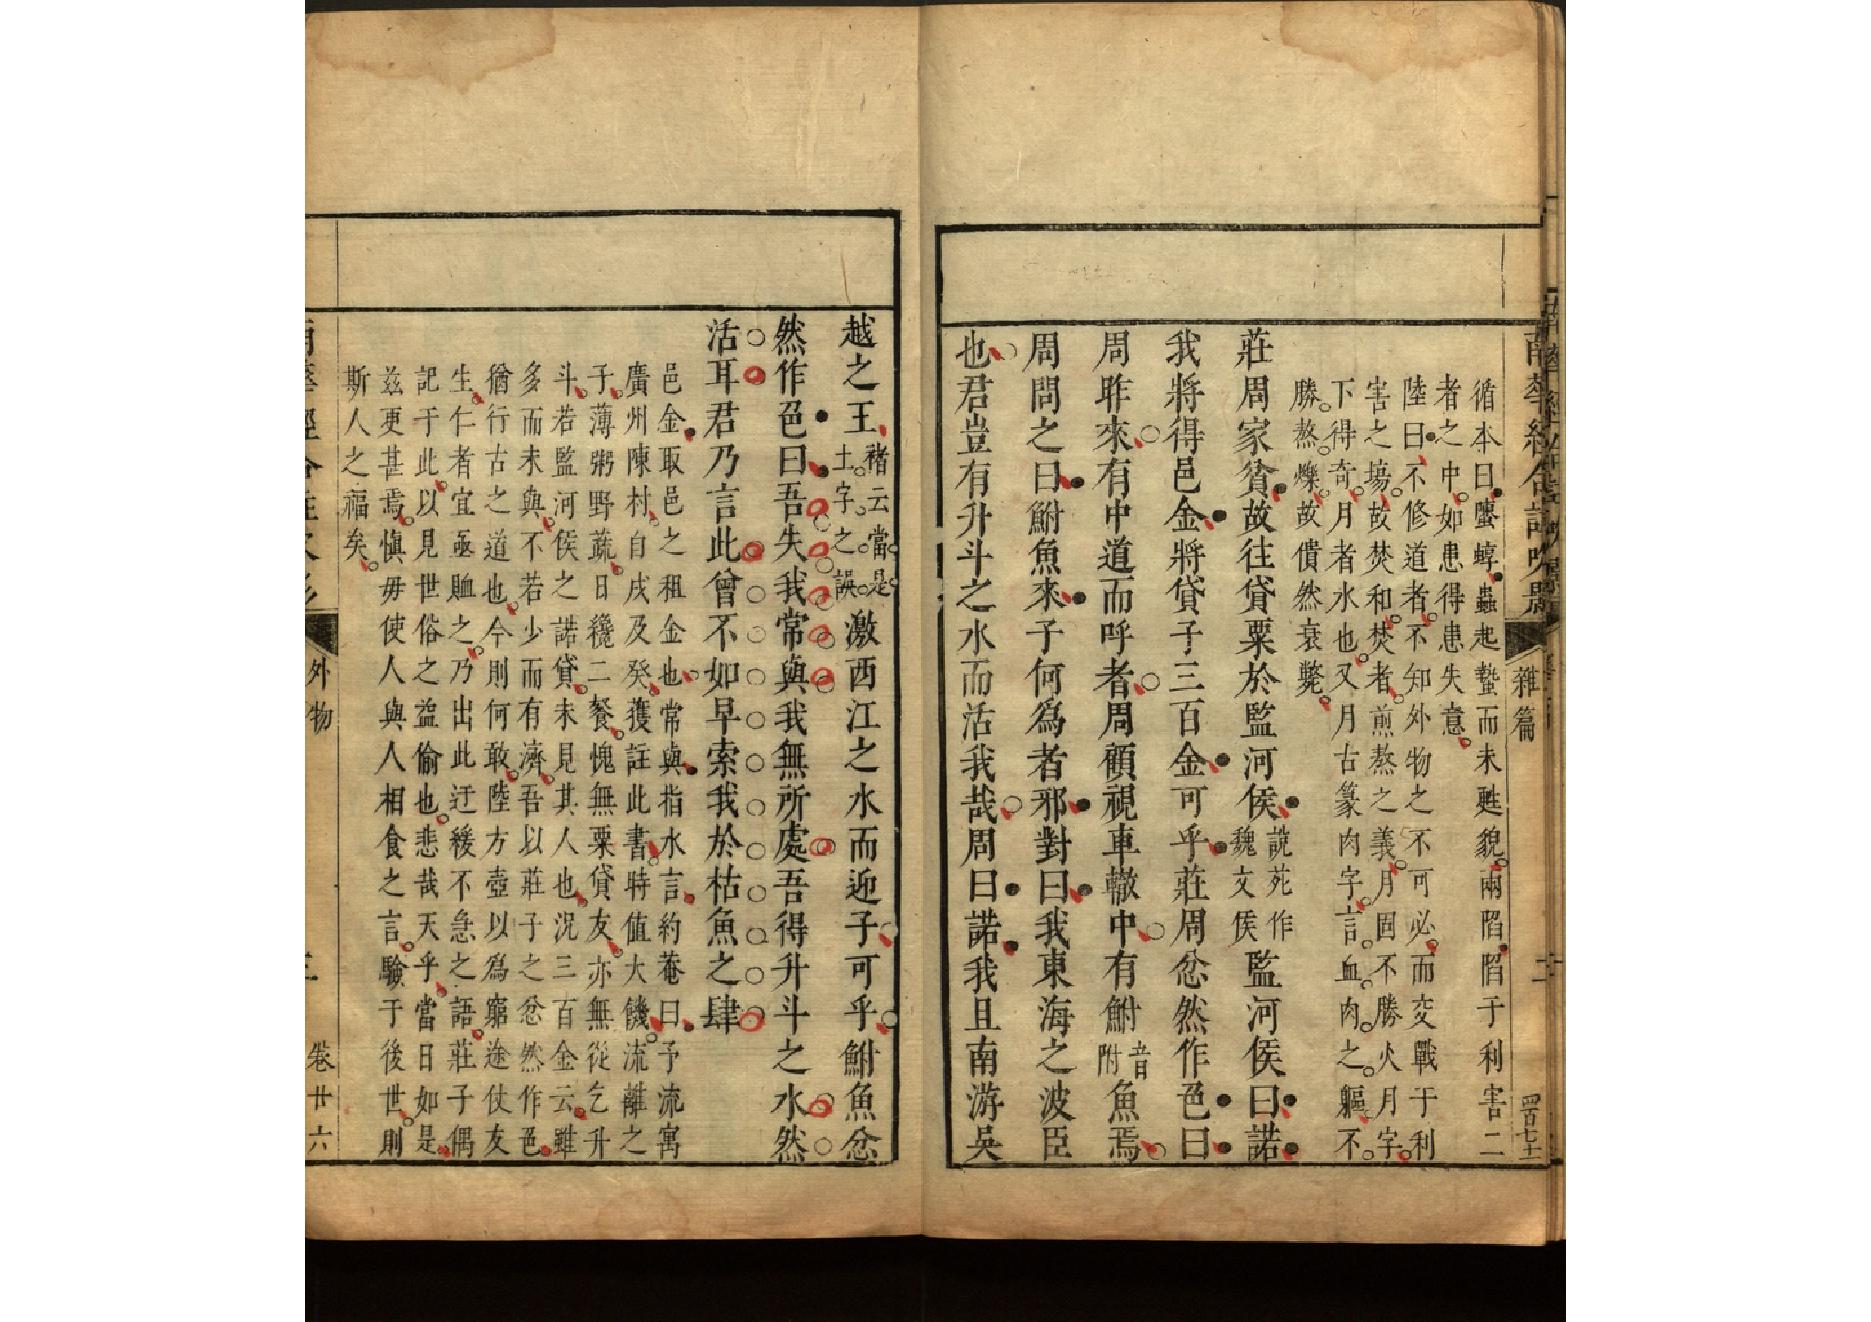 雜篇
循本曰螴蜳蟲起蟄而未甦貌兩陷陷于利害二
者之中如患得患失意
陸曰不修道者不知外物之不可必而交戰于利
害之塲故焚和焚者煎熬之義月固不勝火月字
下得奇月者水也又月古篆肉字言血肉之軀不
勝熬爍故僓然衰斃
莊周家貧故往貸粟於監河侯說苑作魏文侯監河侯曰諾
我將得邑金將貸子三百金可乎莊周忿然作色曰
周昨來有中道而呼者周顧視車轍中有鮒音附魚焉
周問之曰鮒魚來子何爲者邪對曰我東海之波臣
也君豈有升斗之水而活我哉周曰諾我且南游吳
越之王褚云當是土字之誤激西江之水而迎子可乎鮒魚忿
然作色曰吾失我常與我無所處吾得升斗之水然
活耳君乃言此曾不如早索我於枯魚之肆
邑金取邑之租金也常與指水言約菴曰予流寓
廣州陳村自戌及癸獲註此書時值大饑流離之
子薄粥野蔬日纔二餐愧無粟貸友亦無從乞升
斗若監河侯之諾貸未見其人也況三百金云雖
多而未與不若少而有濟吾以莊子之忿然作色
猶行古之道也今則何敢陸方壺以爲窮途伎友
生仁者宜亟賙之乃出此迂緩不急之語莊子偶
記于此以見世俗之益偷也悲哉天乎當日如是
兹更甚焉愼毋使人與人相食之言驗于後世則
斯人之福矣
外物
卷廿六